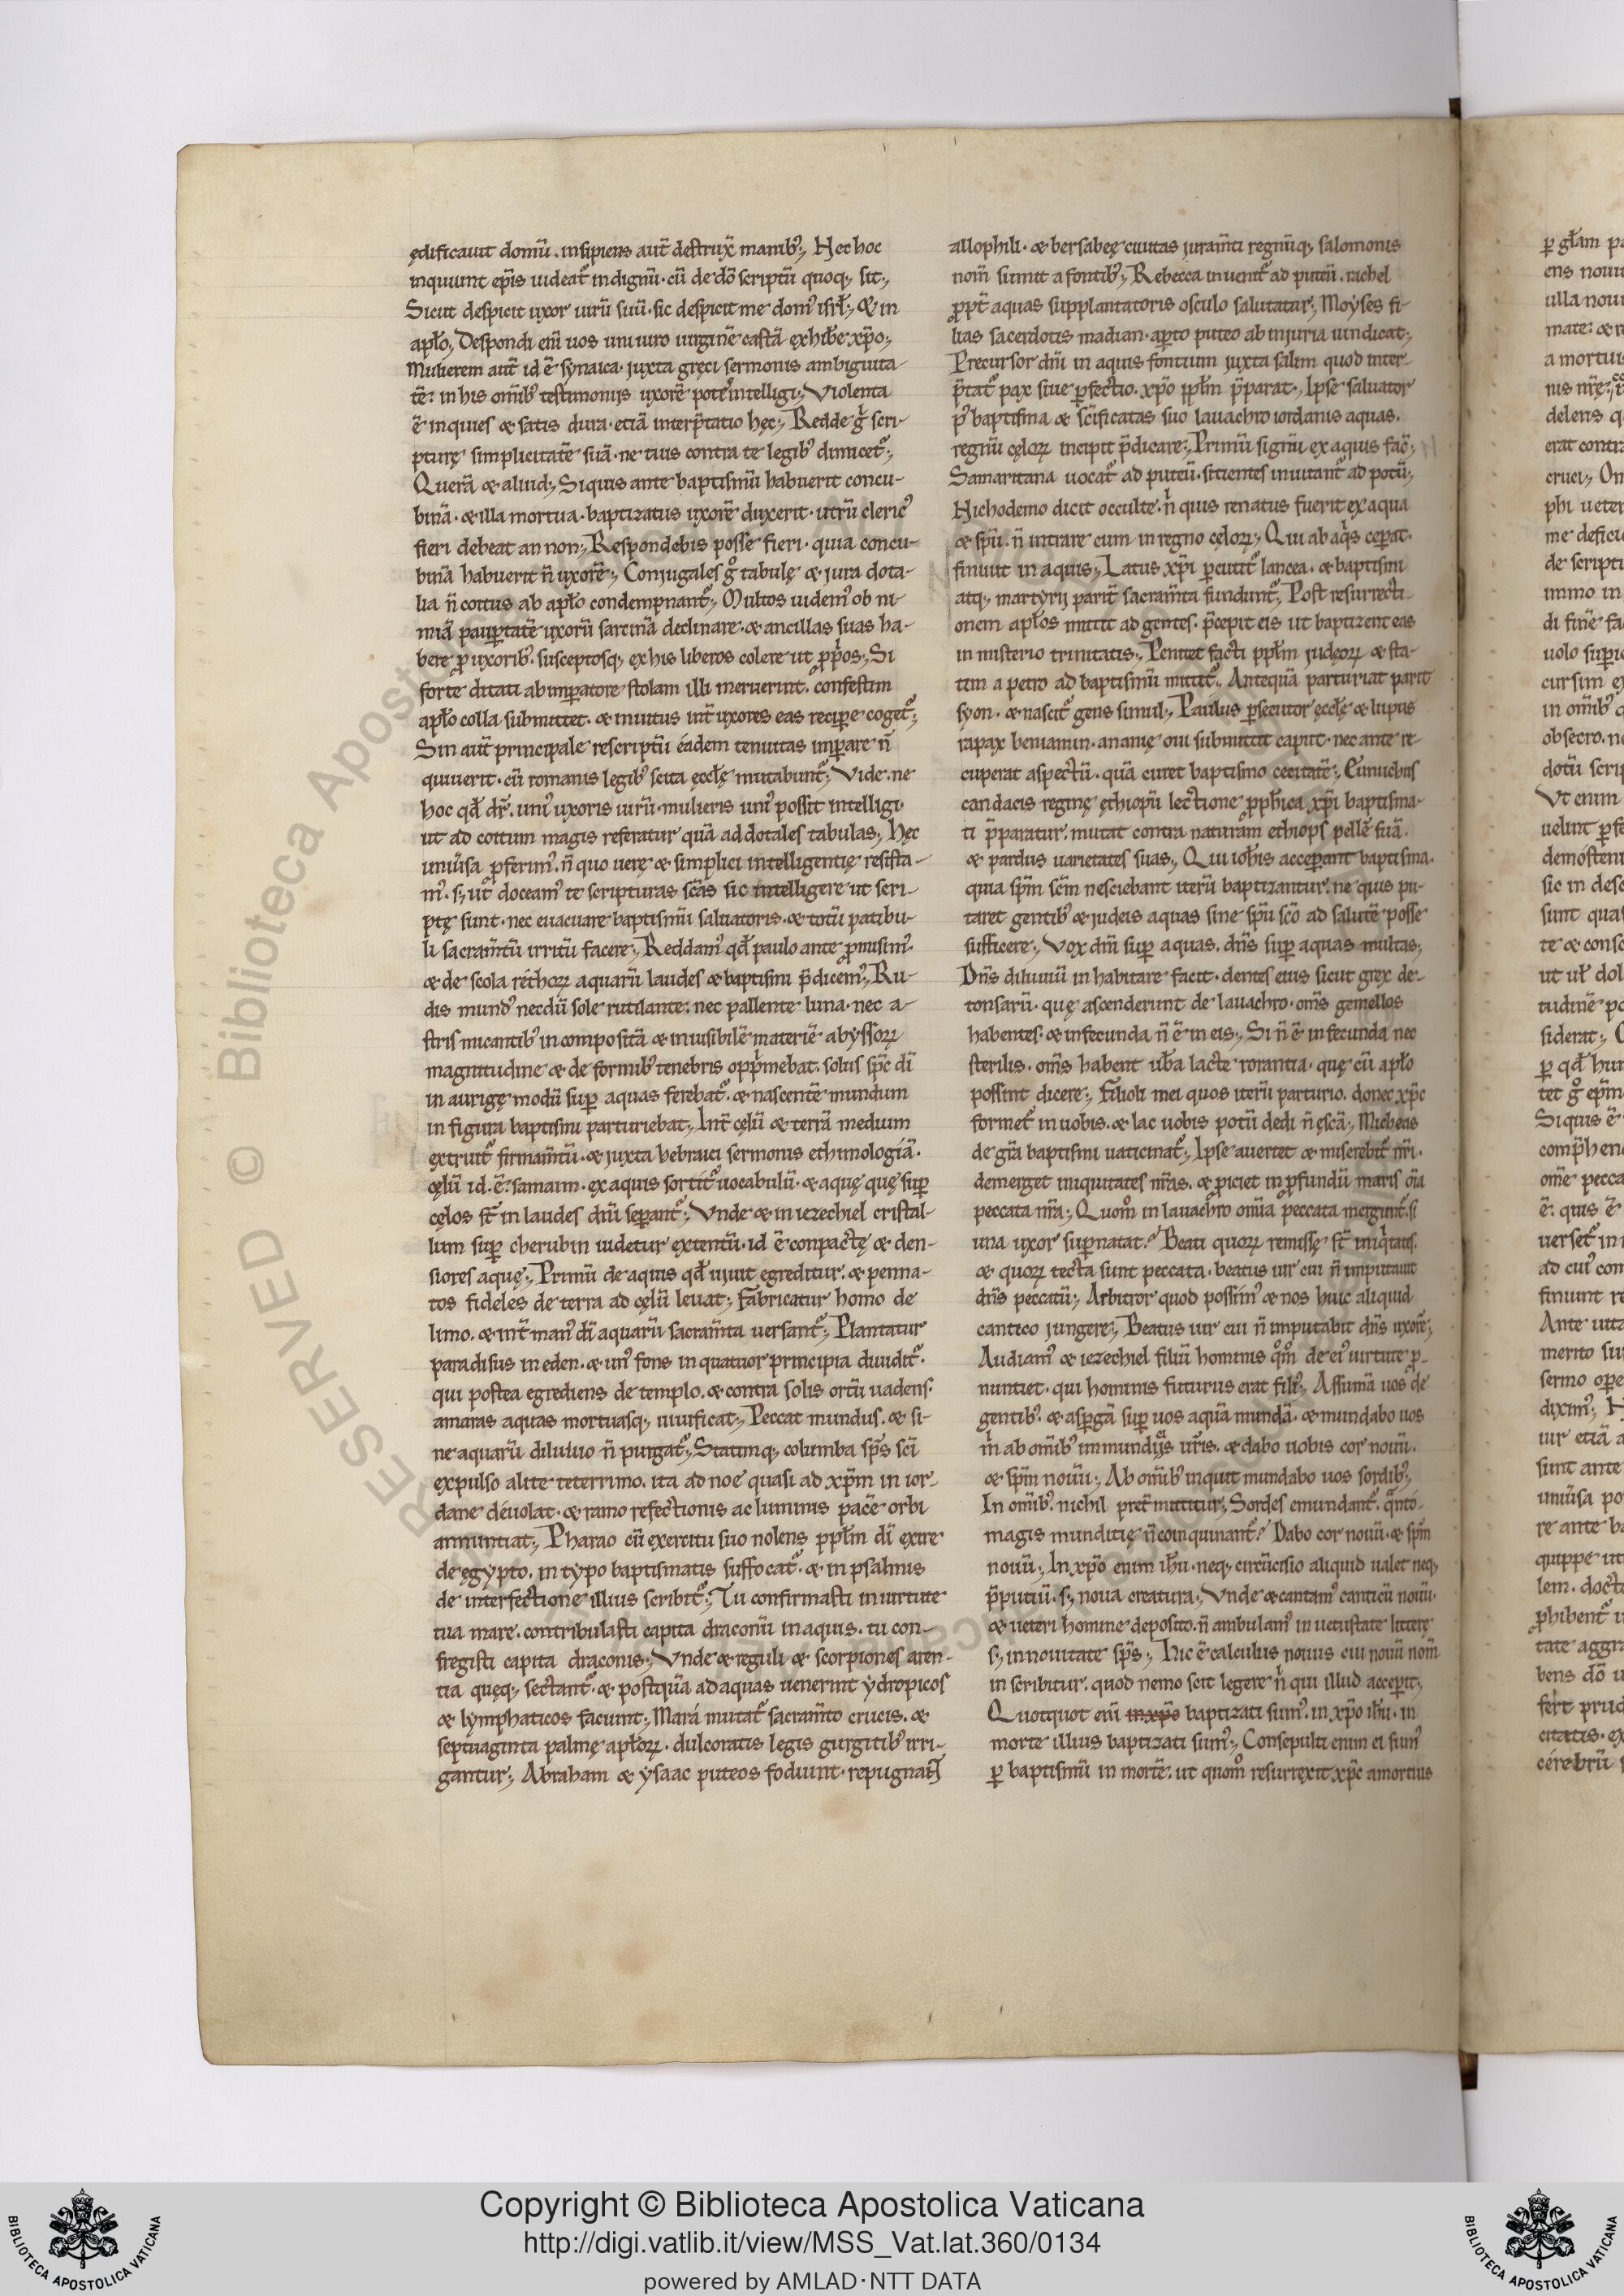 ędificauit domū. insipiens aut̄ destrux̄ manib᷒;, Hec hoc
inquiunt epīs uideat᷑ indignū. cū de dō scriptū quoq;, sit;,
Sicut despicit uxor uirū suū. sic despicit me dom᷒ isrl̄;, & in
aplo;, Despondi eni uos uni uiro uirginē castā exhibe xp̄o;,
Mulierem aut̄ id ē synaica. juxta gręci sermonis ambiguita-
tē: in his om̄ib᷒ testimonijs uxorē pote᷑ intelligi;, Violenta
ē inquies & satis dura. etiā interp̄tatio hęc;, Redde g̊ scri-
pturę simplicitatē suā. ne tuis contra te legib᷒ dimicet᷑;,
Querā & aliud;, Siquis ante baptismū habuerit concu-
binā. & illa mortua. baptizatus uxorē duxerit. utrū cleric᷒
fieri debeat an non;, Respondebis posse fieri. quia concu-
binā habuerit n̄ uxorē;, Conjugales g̊ tabulę & jura dota-
lia n̄ coitus ab aplo condempnant᷑;, Multos uidem᷒ ob ni-
miā paup̱tatē uxorū sarcinā declinare. & ancillas suas ha-
bere ꝓ uxorib᷒. susceptosq; ex his liberos colere ut ꝓp̄os;, Si
forte ditati ab imꝑatore stolam illi meruerint. confestim
aplo colla submittet. & inuitus int̄ uxores eas reciꝑe coget᷑;,
Sin aut̄ principale rescriptū eadem tenuitas imꝑare n̄
quiuerit. cū romanis legib᷒ scita ęccłę mutabunt᷑;, Vide. ne
hoc qd̄ dr̄. uni᷒ uxoris uirū. mulieris uni᷒ possit intelligi.
ut ad coitum magis referatur quā ad dotales tabulas;, Hęc
uniūsa ꝓferim᷒. n̄ quo uerę & simplici intelligentię resista-
m᷒. s; ut doceam᷒ te scripturas scās sic intelligere ut scri-
ptę sunt. nec euacuare baptismū saluatoris. & totū patibu-
li sacram̄tū irritū facere;, Reddam᷒ qd̄ paulo ante ꝓmisim᷒.
& de scola rethorꝝ aquarū laudes & baptismi p̄dicem᷒;, Ru-
dis mund᷒ necdū sole rutilante. nec pallente luna. nec a-
stris micantib᷒ incompositā & inuisibilē materiē abyssorꝝ
magnitudine & de formib᷒ tenebris opp̄mebat. solus sp̄c dī
in aurigę modū suꝑ aquas ferebat᷑. & nascentē mundum
in figura baptismi parturiebat;, Int̄ cęlū & terrā medium
ęxtruit᷑ firmam̄tū. & juxta hebraici sermonis ethimologiā.
cęlū id. ē. samaim. ex aquis sortit᷑ uocabulū. & aquę quę suꝑ
cęlos st̄ in laudes dnī seꝑant᷑;, Vnde & in iezechiel cristal-
lum suꝑ cherubin uidetur extentū. id ē conpactę & den-
siores aquę;, Primū de aquis qd̄ uiuit egreditur. & penna-
tos fideles de terra ad cęlū leuat;, Fabricatur homo de
limo. & int̄ man᷒ dī aquarū sacram̄ta uersant᷑;, Plantatur
paradisus in eden. & un᷒ fons in quatuor principia diuidit᷑.
qui postea egrediens de templo. & contra solis ortū uadens.
amaras aquas mortuasq; uiuificat;, Peccat mundus. & si-
ne aquarū diluuio n̄ purgat᷑;, Statimq; columba sp̄s sc̄i
expulso alite teterrimo. ita ad noe quasi ad xp̄m in ior-
dane deuolat. & ramo refectionis ac luminis pacē orbi
annuntiat;, Pharao cū exercitu suo nolens ppl̄m dī exire
de ęgypto. in typo baptismatis suffocat᷑. & in psalmis
de interfectione illius scribit᷑;, Tu confirmasti in uirtute
tua mare. contribulasti capita draconū in aquis. tu con-
fregisti capita draconis;, Vnde & reguli & scorpiones aren-
tia quęq; sectant᷑. & postquā ad aquas uenerint ydropicos
& lymphaticos faciunt;, Mara mutat᷑ sacram̄to crucis. &
septuaginta palmę aplorꝝ. dulcoratis legis gurgitib᷒ irri-
gantur;, Abraham & ysaac puteos fodiunt. repugnant
allophili. & bersabeę ciuitas juram̄ti regnūq; salomonis
nom̄ sumit a fontib᷒;, Rebecca inuenit᷑ ad puteū. rachel
ꝓpt̄ aquas supplantatoris osculo salutatur;, Moyses fi-
lias sacerdotis madian. aꝑto puteo ab injuria uindicat;,
Precursor dnī in aquis fontium juxta salim quod inter-
p̄tat᷑ pax siue ꝑfectio. xp̄o ppl̄m p̄parat;, Ipse saluator
p᷒ baptisma & scīficatas suo lauachro iordanis aquas.
regnū cęlorꝝ incipit p̄dicare;, Primū signū ex aquis fac̄;,
Samaritana uocat᷑ ad puteū. sitientes inuitant᷑ ad potū;,
Nichodemo dicit occulte. n̄ quis renatus fuerit ex aqua
& sp̄u. n̄ intrare eum in regno cęlorꝝ;, Qui ab aq̄s ceꝑat.
finiuit in aquis;, Latus xp̄i ꝑcutit᷑ lancea. & baptismi
atq; martyrij parit̄ sacram̄ta fundunt᷑;, Post resurrecti-
onem aplos mittit ad gentes. p̄cepit eis ut baptizent eas
in misterio trinitatis;, Penitet facti ppl̄m judeorꝝ & sta-
tim a petro ad baptismū mittit᷑;, Antequā parturiat parit
syon. & nascit᷑ gens simul;, Paulus ꝑsecutor ęccłę & lupus
rapax beniamin. ananię oui submittit caput. nec ante re-
cuperat aspectū. quā curet baptismo cecitatē;, Eunuchus
candacis reginę ęthiopū lectione ꝓphica xp̄i baptisma-
ti p̄paratur. mutat contra naturam ethiops pellē suā.
& pardus uarietates suas;, Qui iohis acceꝑant baptisma.
quia sp̄m sc̄m nesciebant iterū baptizantur. ne quis pu-
taret gentib᷒ & judeis aquas sine sp̄u sc̄o ad salutē posse
sufficere;, Vox dnī suꝑ aquas. dn̄s suꝑ aquas multas;,
Dn̄s diluuiū in habitare facit. dentes eius sicut grex de-
tonsarū. quę ascenderunt de lauachro. om̄s gemellos
habentes. & infecunda n̄ ē in eis;, Si n̄ ē infecunda nec
sterilis. om̄s habent ub̄a lacte rorantia. quę cū aplo
possint dicere;, Filioli mei quos iterū parturio. donec xp̄c
formet᷑ in uobis. & lac uobis potū dedi n̄ ęscā;, Micheas
de gr̄a baptismi uaticinat᷑;, Ipse auertet & miserebit᷑ nrī.
demerget iniquitates nr̄as. & ꝓiciet in ꝓfundū maris om̄ia
peccata nr̄a;, Quom̊ in lauachro omīa peccata mergunt᷑. si
una uxor suꝑnatat? Beati quorꝝ remissę st̄ iniq̇tates.
& quorꝝ tecta sunt peccata. beatus uir cui n̄ imputauit
dn̄s peccatū;, Arbitror quod possim᷒ & nos huic aliquid
cantico jungere;, Beatus uir cui n̄ imputabit dn̄s uxorē;,
Audiam᷒ & iezechiel filiū hominis q̊m̊ de ei᷒ uirtute ꝓ-
nuntiet. qui hominis futurus erat fili᷒;, Assumā uos de
gentib᷒. & asꝑgā suꝑ uos aquā mundā. & mundabo uos
m̄ ab om̄ib᷒ immundijs ur̄is. & dabo uobis cor nouū.
& sp̄m nouū;, Ab om̄ib᷒ inquit mundabo uos sordib᷒;,
In om̄ib᷒. nichil pret̄mittitur;, Sordes emundant᷑. q̄nto
magis munditię n̄ coinquinant᷑? Dabo cor nouū. & sp̄m
nouū;, In xp̄o enim ih̄u. neq; circūcisio aliquid ualet neq;
p̄putiū. s; noua creatura;, Vnde & cantam᷒ canticū nouū.
& ueteri homine deposito. n̄ ambulam᷒ in uetustate litterę
s; in nouitate sp̄s;, Hic ē calculus nouus cui nouū nom̄
in scribitur. quod nemo scit legere n̄ qui illud acceꝑit;,
Quotquot eni in xp̄o baptizati sum᷒. in xp̄o ih̄u. in
morte illius baptizati sum᷒;, Consepulti enim ei sum᷒
ꝑ baptismū in mortē. ut quom̊ resurrexit xp̄c amortuis
ꝑ gl̄am
ens
ulla
mate. &
a mortuis
nis nrę.
delens
erat contra
cruci;,
phi ueter
me
de scriptu
immo in
di finē
uolo
cursim
in om̄ib᷒
obsecro.
dotū
Vt enim
uelint
demosten
sic in
sunt quas
te &
ut ul̄
tudinē
siderat;,
ꝑ qd̄
tet g̊ epm̄
Siquis ē
comp̄h
omē pecca
ē. quis ē
uerset᷑ in
ad cui᷒
finiunt
Ante uita
merito
sermo
dixim᷒;,
uir etiā
sunt ante
uniūsa
re ante
quippe ut
lem.
ꝓhibent᷑
tate
bens dō
fert
citatis.
cerebrū
RESERVED © Biblioteca Apostolica
Copyright © Biblioteca Apostolica Vaticana
http://digi.vatlib.it/view/MSS_Vat.lat.360/0134
powered by AMLAD·NTT DATA
BIBLIOTECA APOSTOLICA VATICANA
BIBLIOTECA APOSTOLICA VATICANA